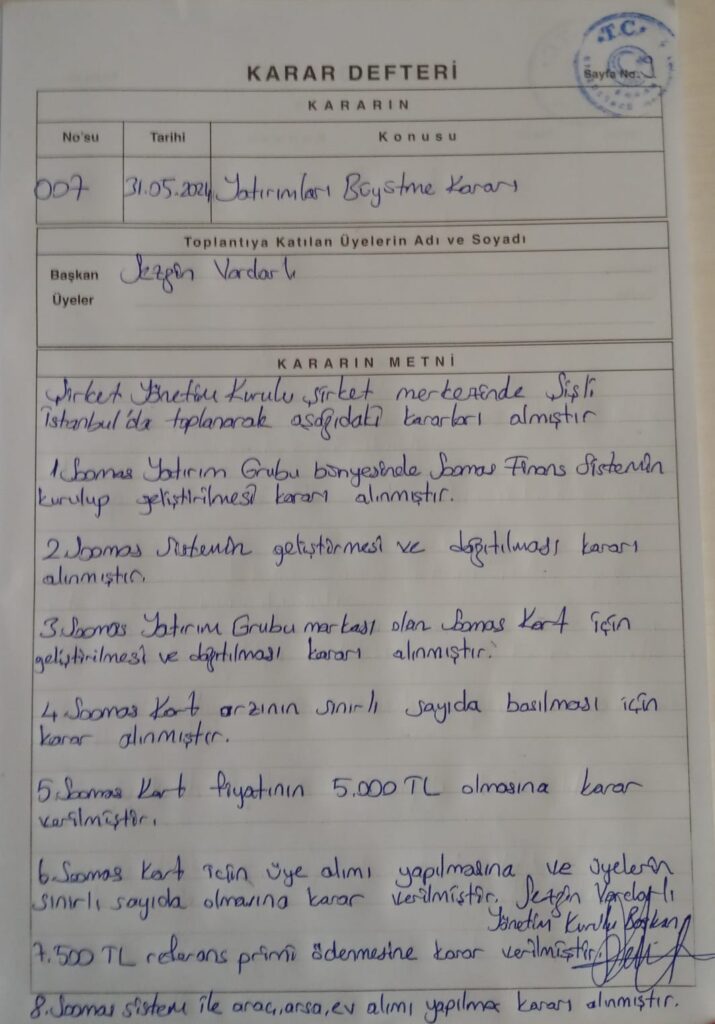 T.C.
KARAR DEFTERİ
Sayfa No.
KARARIN
No'su Tarihi Konusu
007 31.05.2024 Yatırımları Büyütme Kararı
Toplantıya Katılan Üyelerin Adı ve Soyadı
Başkan Sezgin Vardarlı
Üyeler
KARARIN METNİ
Şirket Yönetim Kurulu şirket merkezinde Şişli
İstanbul'da toplanarak aşağıdaki kararları almıştır
1.Soomas Yatırım Grubu bünyesinde Soomas Finans Sistemin
kurulup geliştirilmesi kararı alınmıştır.
2.Soomas Sistemin geliştirmesi ve dağıtılması kararı
alınmıştır.
3.Soomas Yatırım Grubu markası olan Soomas Kart için
geliştirilmesi ve dağıtılması kararı alınmıştır.
4.Soomas Kart arzının sınırlı sayıda basılması için
karar alınmıştır.
5.Soomas Kart fiyatının 5.000 TL olmasına karar
verilmiştir.
6.Soomas Kart için üye alımı yapılmasına ve üyelerin
sınırlı sayıda olmasına karar verilmiştir. Sezgin Vardarlı
Yönetim Kurulu Başkanı
7.500 TL referans primi ödenmesine karar verilmiştir.
8.Soomas sistem ile araç,arsa,ev alımı yapılma kararı alınmıştır.